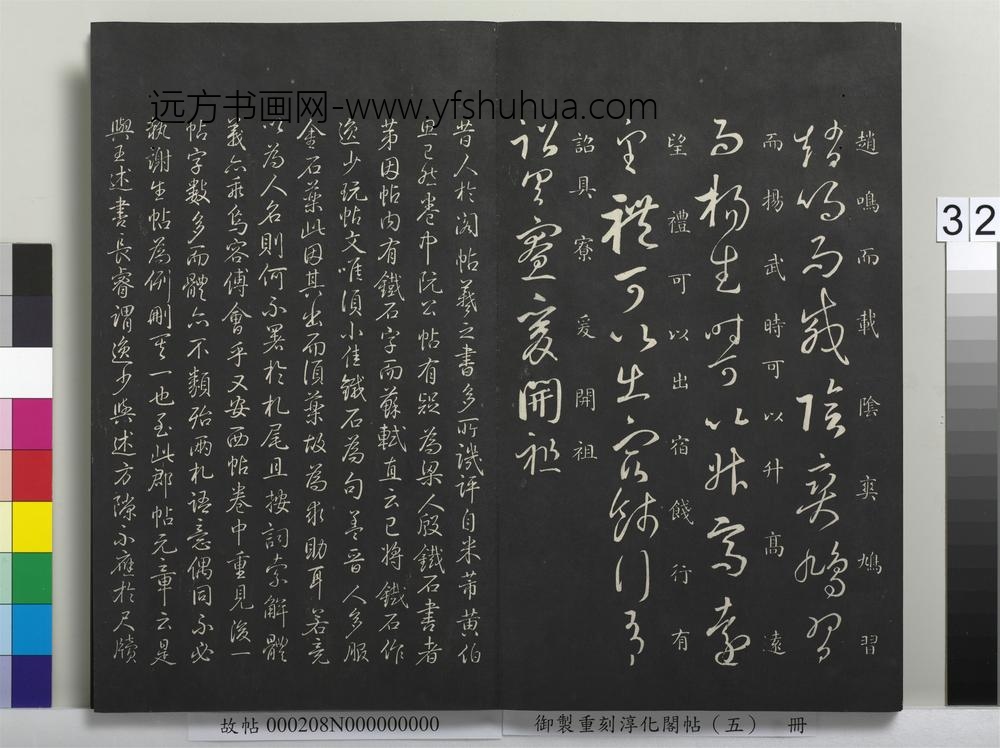 趙鳴而載陰爽鳩習
趙鳴而載陰爽鳩習
而揚武時可以升高遠
而揚武時可以升高遠
望禮可以出宿餞行有
望禮可以出宿餞行有
詔具寮爰開祖
詔具寮爰開祖
昔人於閣帖羲之書多所譏評自米芾黃伯
思已然卷中阮公帖有疑為梁人殷鐵石書者
第因帖內有鐵石字而蘇軾直云已將鐵石作
逸少玩帖文唯須小佳鐵石為句蓋晉人多服
金石藥此因其出而須藥故為求助耳若竟
以為人名則何不署於札尾且按詞索解體
義亦乖烏容傅會乎又安西帖卷中重見後一
帖字數多而體亦不類殆兩札語意偶同不必
執謝生帖為例刪其一也至此郡帖元章云是
與王述書長睿謂逸少與述方隙不應於尺牘
远方书画网-www.yfshuhua.com
32
故帖 000208N000000000
御製重刻淳化閣帖（五） 冊